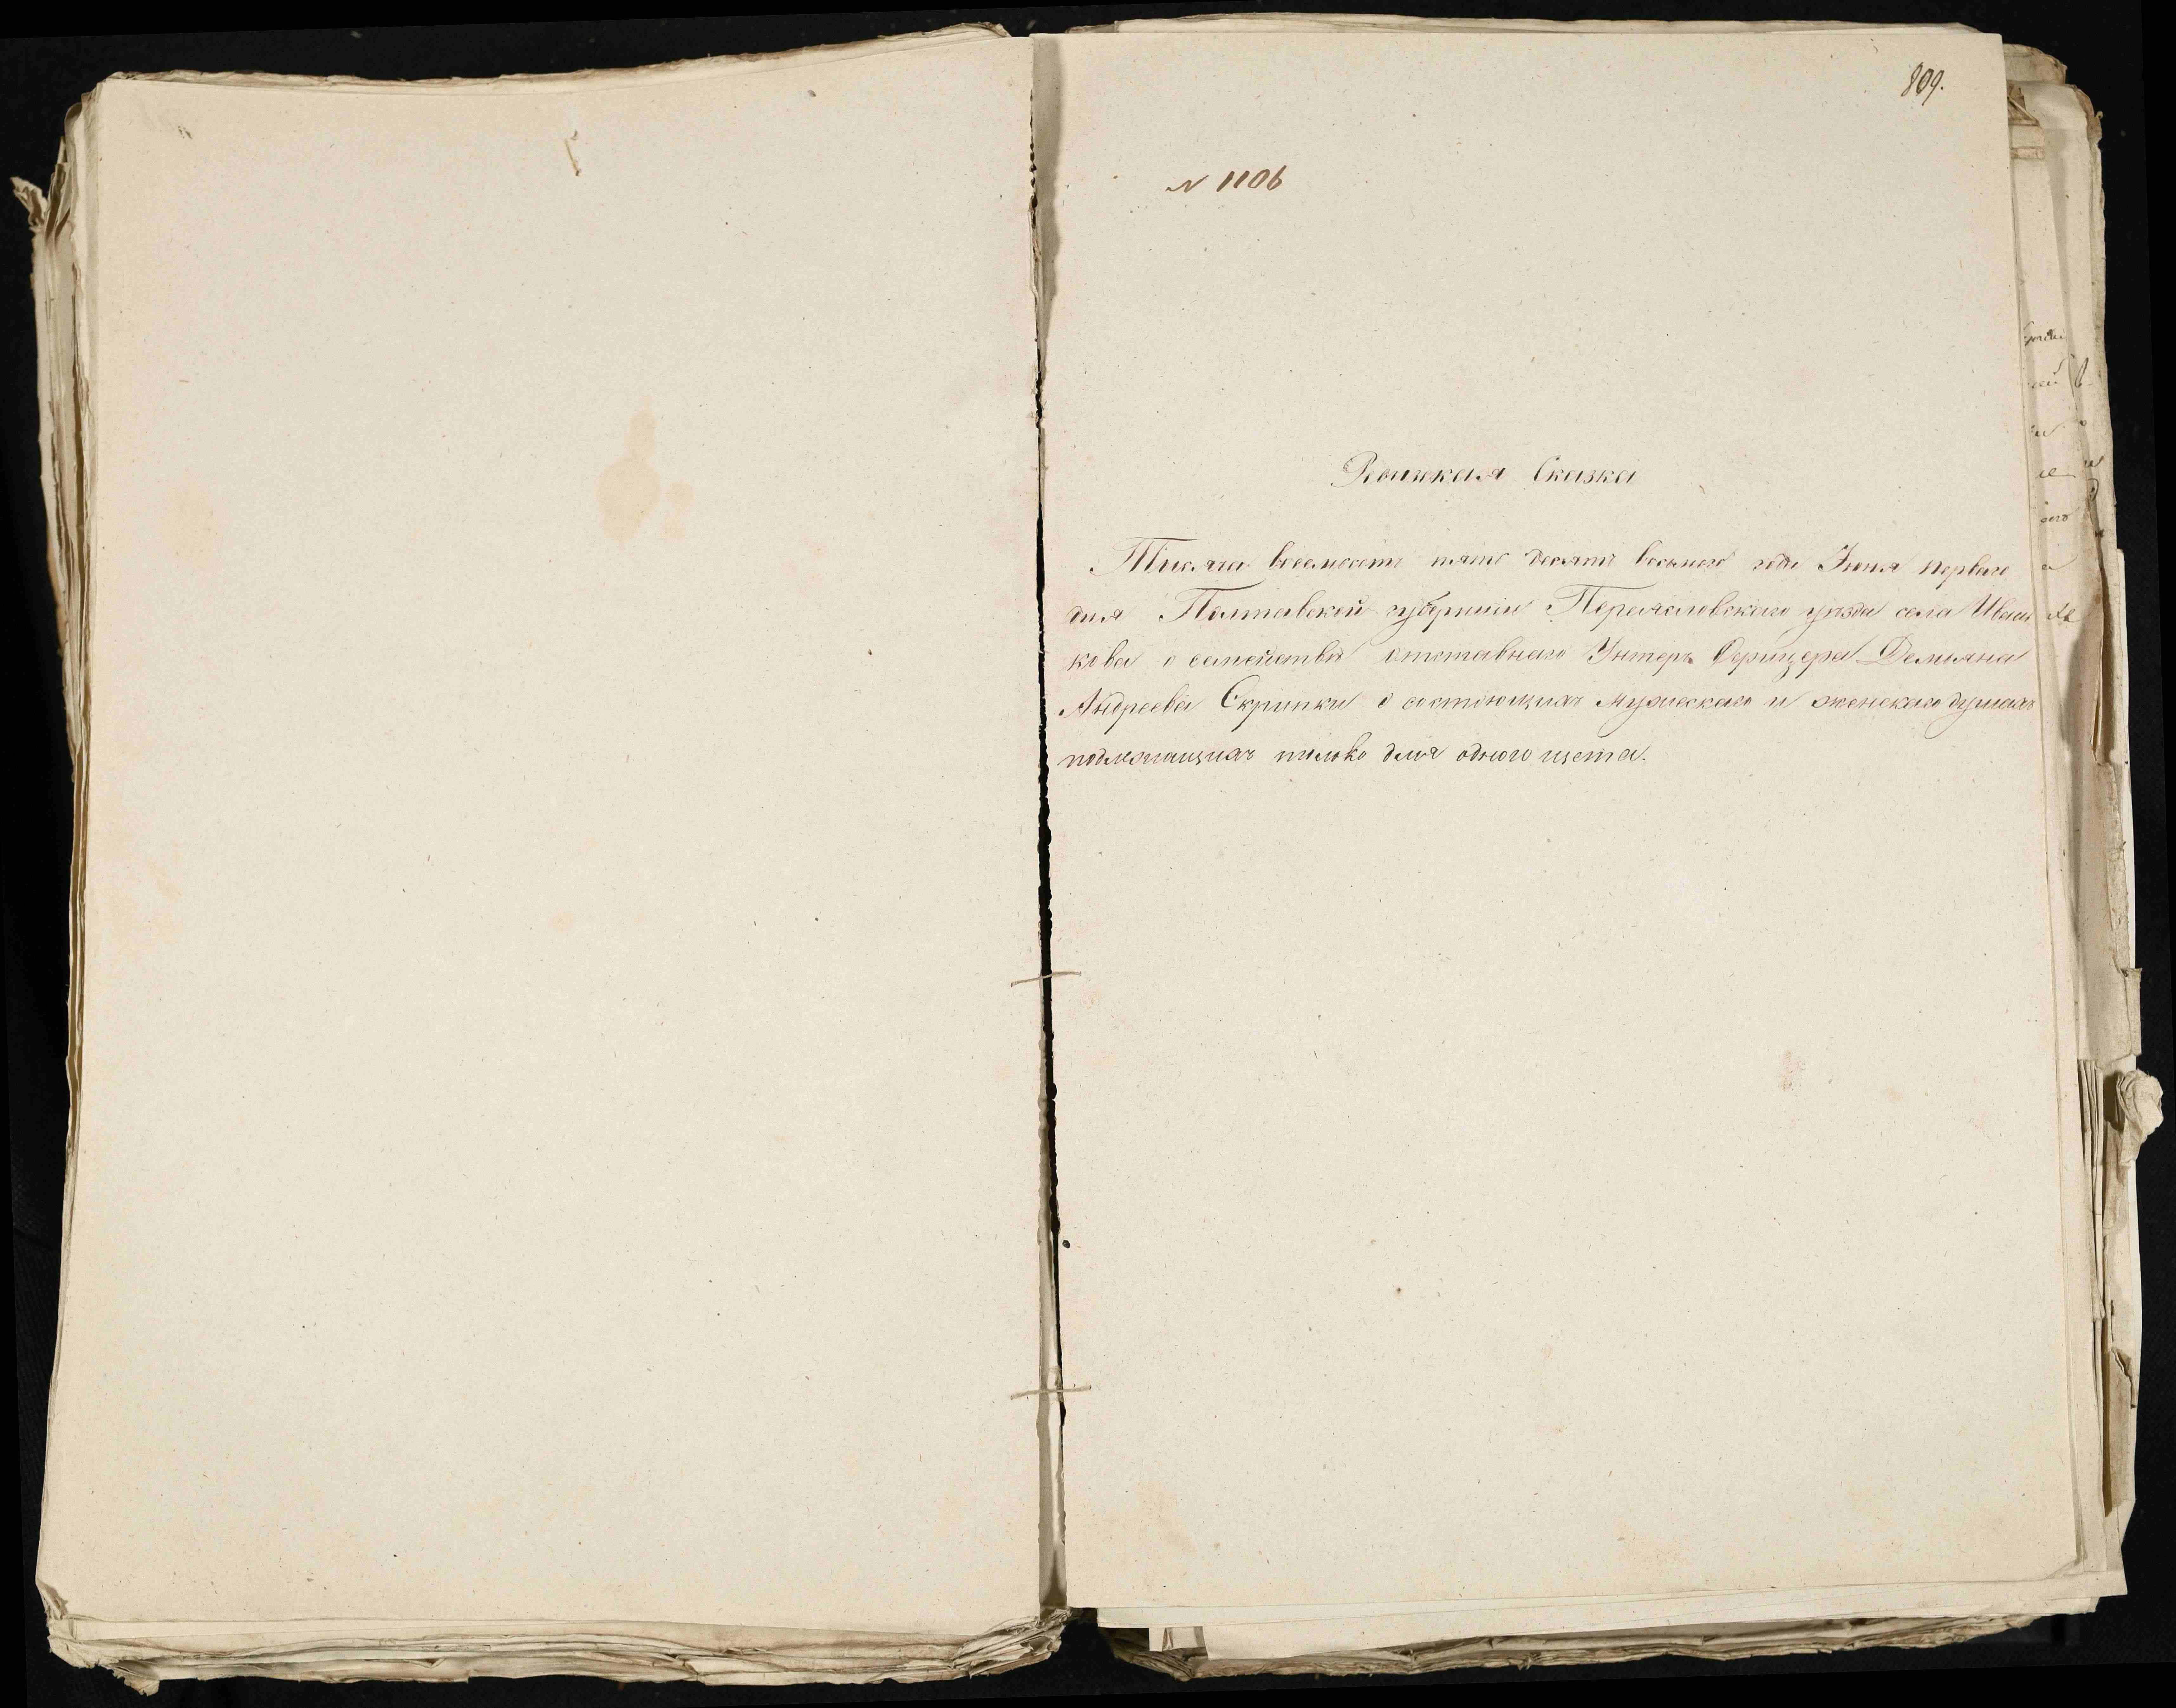 809.
N 1106
Ревижская Сказка
Тысяча восемьсотъ пять десятъ восьмаго года Іюня перваго
дня Полтавской губерніи Переясловскаго уѣзда села Иваш
кова о семействѣ отставнаго Унтеръ Офицера Демьяна
Андреева Скрипки о состоющихъ мужескаго и женскаго душахъ
подлежащихъ только для одного щета.